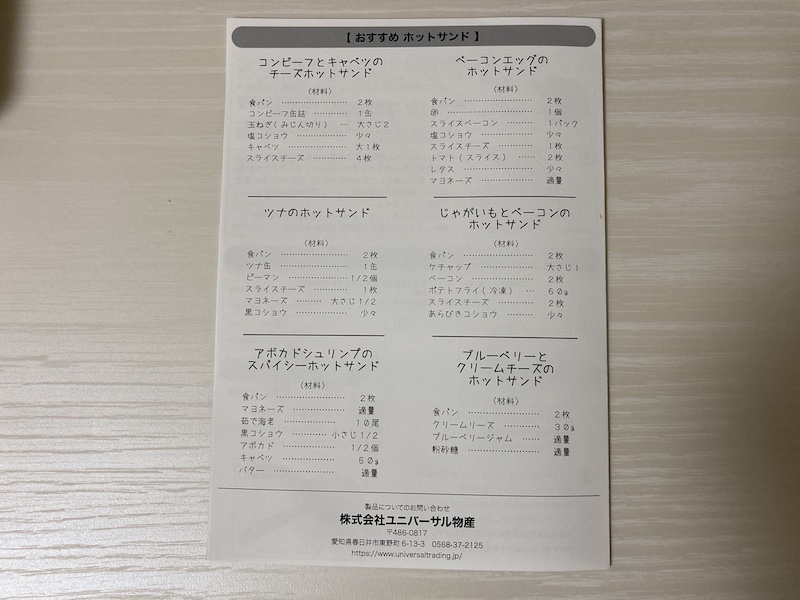 【 おすすめ ホットサンド 】
コンビーフとキャベツの
チーズホットサンド
（材料）
食パン ………………… 2枚
コンビーフ缶詰 ………… 1缶
玉ねぎ(みじん切り) … 大さじ2
塩コショウ …………… 少々
キャベツ …………… 大1枚
スライスチーズ ………… 4枚
ベーコンエッグの
ホットサンド
（材料）
食パン ………………… 2枚
卵 ……………………… 1個
スライスベーコン ……… 1パック
塩コショウ …………… 少々
スライスチーズ ………… 1枚
トマト(スライス) …… 2枚
レタス ………………… 少々
マヨネーズ …………… 適量
ツナのホットサンド
（材料）
食パン ………………… 2枚
ツナ缶 ………………… 1缶
ピーマン ……………… 1/2個
スライスチーズ ………… 1枚
マヨネーズ ……… 大さじ1/2
黒コショウ …………… 少々
じゃがいもとベーコンの
ホットサンド
（材料）
食パン ………………… 2枚
ケチャップ …………… 大さじ1
ベーコン ……………… 2枚
ポテトフライ(冷凍) … 60g
スライスチーズ ………… 2枚
あらびきコショウ ……… 少々
アボカドシュリンプの
スパイシーホットサンド
（材料）
食パン ………………… 2枚
マヨネーズ …………… 適量
茹で海老 ……………… 10尾
黒コショウ ………… 小さじ1/2
アボカド ……………… 1/2個
キャベツ ……………… 50g
バター ………………… 適量
ブルーベリーと
クリームチーズの
ホットサンド
（材料）
食パン ………………… 2枚
クリームリーズ ………… 30g
ブルーベリージャム …… 適量
粉砂糖 ………………… 適量
製品についてのお問い合わせ
株式会社ユニバーサル物産
〒486-0817
愛知県春日井市東野町 6-13-3 0568-37-2125
https://www.universaltrading.jp/